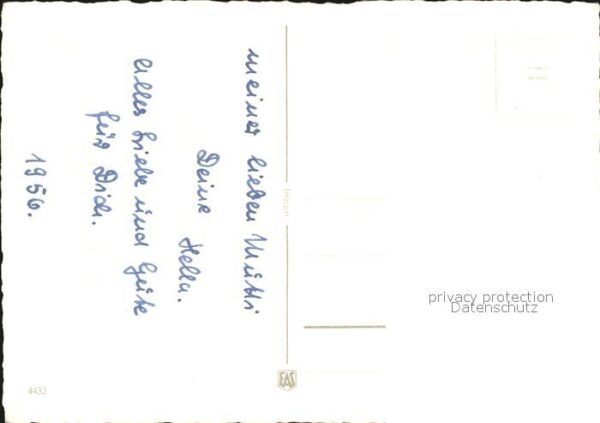 meiner lieben Mutti
Deine Hella.
Alles Liebe und Gute
für Dich.
1956.
Import
EAS
4432
privacy protection
Datenschutz